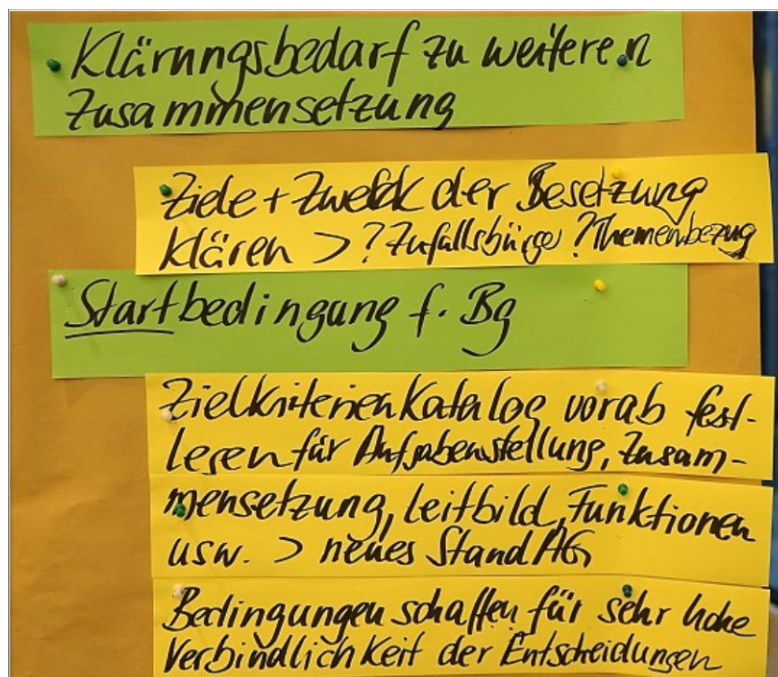 Klärungsbedarf zu weiteren
Zusammensetzung
Ziele + Zweck der Besetzung
klären > ? Zufallsbürger ? Themenbezug
Startbedingung f. Bg
Zielkriterienkatalog vorab fest-
legen für Aufgabenstellung, Zusam-
mensetzung, Leitbild, Funktionen
usw. > neues StandAG
Bedingungen schaffen für sehr hohe
Verbindlichkeit der Entscheidungen